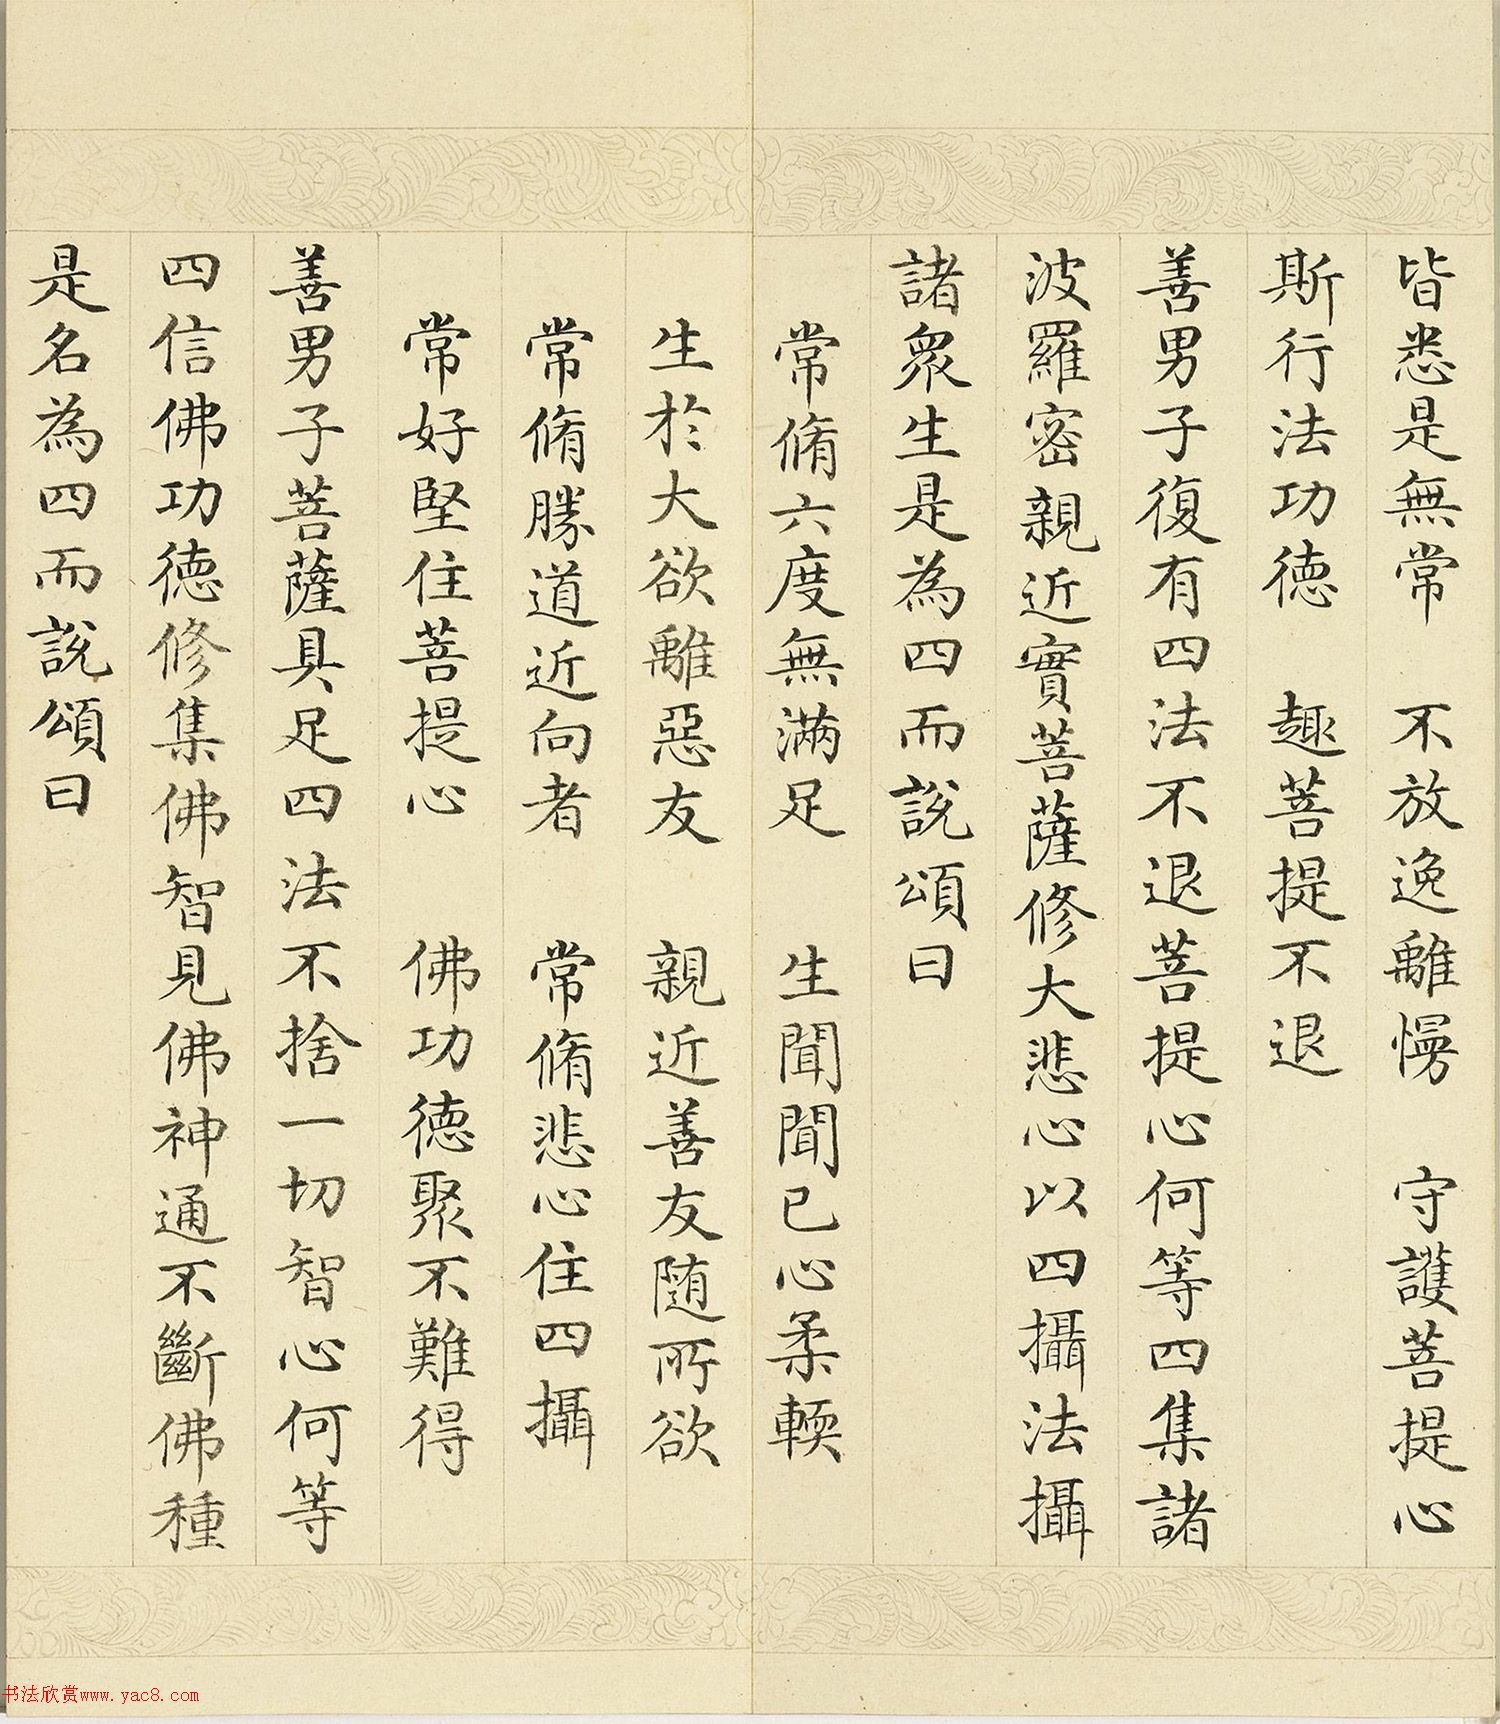 皆悉是無常　不放逸離慢　守護菩提心
斯行法功德　趣菩提不退
善男子復有四法不退菩提心何等四集諸
波羅密親近實菩薩修大悲心以四攝法攝
諸衆生是為四而說頌曰
常脩六度無滿足　生聞聞已心柔輭
生於大欲離惡友　親近善友隨所欲
常脩勝道近向者　常脩悲心住四攝
常好堅住菩提心　佛功德聚不難得
善男子菩薩具足四法不捨一切智心何等
四信佛功德修集佛智見佛神通不斷佛種
是名為四而說頌曰
书法欣赏www.yac8.com